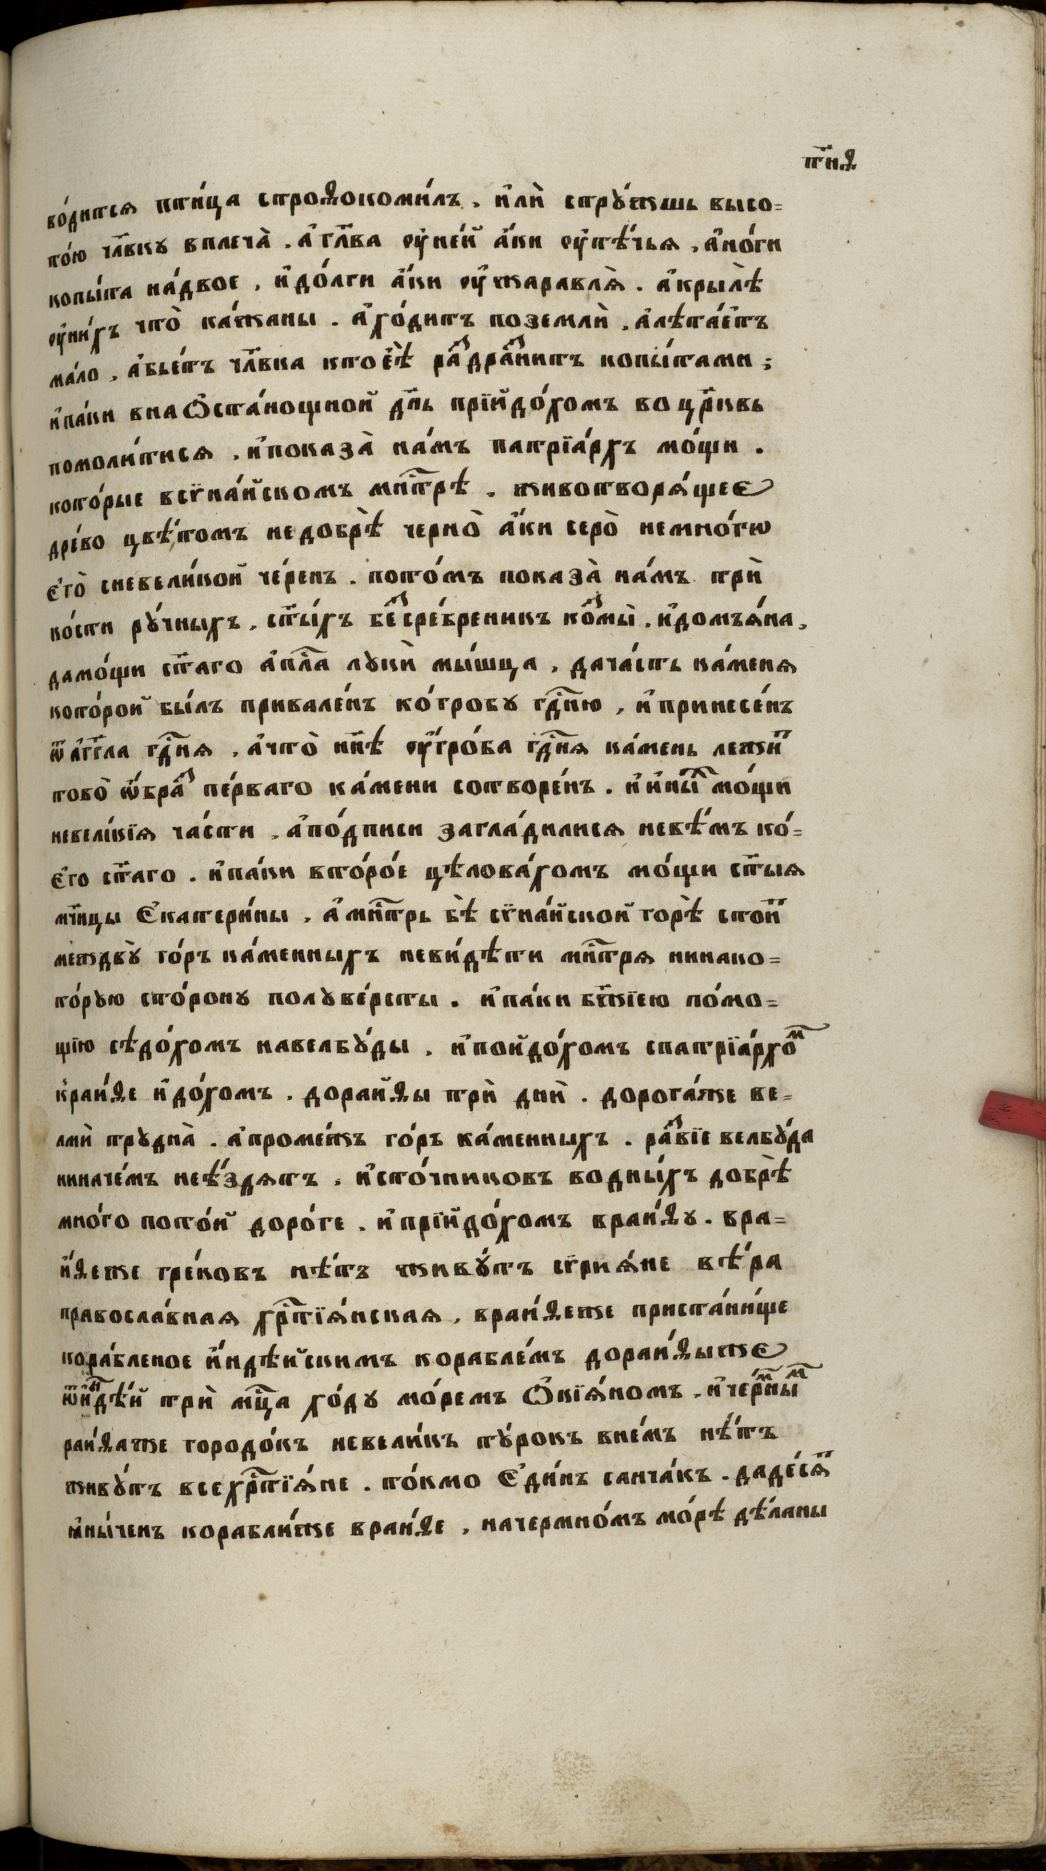 пт҃ня
во́дится пти́ца строѳокоми́лъ , и҆лѝ стру́жшь высо=
то́ю чл҃вку вплеча̀ . а҆ гл҃ва ѹ҆не́й а҆́ки ѹ҆тѣ́чья , а҆но́ги
копы́та на́двое , и҆до́лги а҆́ки ѹ҆жаравлѧ̀ . а҆крылѣ̀
ѹ҆ни́хъ что̀ ко́жаны . а҆хо́дитъ поземлѝ , а҆лѣта́етъ
ма́ло , а҆бье́тъ чл҃вка кто є҆ѣ̀ раздразни́тъ копы́тами ;
и҆па́ки вна ѻ҆ста́ношной дн҃ь прїидо́хомъ во цр҃ковь
помоли́тисѧ , и҆показа̀ на́мъ патрїа́рхъ мо́щи .
кото́рые всїна́йскомъ мн҃трѣ̀ . животворѧ́щее
дре́во цвѣ́томъ не добрѣ̀ черно̀ а҆́ки серо̀ немно́гѡ
є҆го̀ сневели́кой че́ренъ . пото́мъ показа̀ на́мъ трѝ
ко́сти ру́чныхъ , ст҃ы́хъ безсре́бреникъ козмы̀ , и҆домъѧ́на ,
дамо́щи ст҃аго а҆пл҃а лукѝ мы́шца , дача́сть ка́менѧ
кото́рой бы́лъ привале́нъ ко́гробу гд҃ню , и҆принесе́нъ
ѿ а҆́гг҃ла гд҃нѧ , а҆что̀ нн҃ѣ ѹ҆гро́ба гд҃нѧ ка́мень лежи́т
тово̀ ѡ҆́браз пе́рваго ка́мени сотворе́нъ . и҆ и҆ны́х мо́щи
невели́кїѧ ча́сти , а҆по́дписи загла́дилисѧ невѣ́мъ ко=
є҆го ст҃аго . и҆па́ки второ́е цѣлова́хомъ мо́щи ст҃ыѧ
мч҃ницы Є҆катери́ны , а҆мн҃трь бѣ̀ сїна́йской горѣ̀ стои́т
ме́ждву̀ го́ръ ка́менныхъ неви́дѣти мн҃трѧ нинако=
то́рую сто́рону полуве́рсты . и҆па́ки бж҃їею по́мо=
щїю сѣдо́хомъ навелбу́ды , и҆пойдо́хомъ спатрїа́рхом
краи́ѳе и҆до́хомъ . дораи́ѳы трѝ днѝ . дорога́же ве=
лмѝ трудна̀ . а҆проме́жъ го́ръ ка́менныхъ . развїе велбу́да
ниначе́мъ неѣ́здѧтъ , и҆сто́чниковъ водны́хъ добрѣ̀
мно́го потой доро́ге . и҆прїидо́хомъ враи́ѳу . вра=
и́ѳеже гре́ковъ нѣ́тъ живу́тъ сїриѧ́не вѣ́ра
правосла́внаѧ хрⷭ҇тїѧ́нскаѧ , враи́ѳеже приста́нище
кора́бленое и҆ндѣ́йскимъ корабле́мъ дораи́ѳыже
ѿи҆ндѣ́й трѝ мц҃а хо́ду мо́ремъ Ѻ҆кїѧ́номъ , и҆че́рмным
раи́ѳаже городо́къ невели́къ ту́рокъ вне́мъ нѣ́тъ
живу́тъ все хрⷭ҇тїѧ́не . то́кмо Є҆ди́нъ санча́къ . даде́сѧт
ꙗ҆ны́ченъ корабли́же враи́ѳе , начермно́мъ мо́рѣ дѣ́ланы